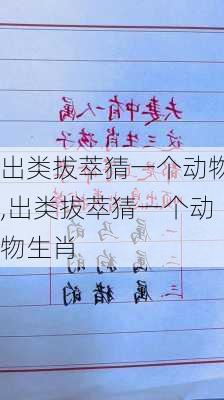 夫妻中有一人属
这三生肖孩子
出类拔萃猜一个动物
,出类拔萃猜一个动
物生肖
一 属马的
二 属 的
三 属猪的